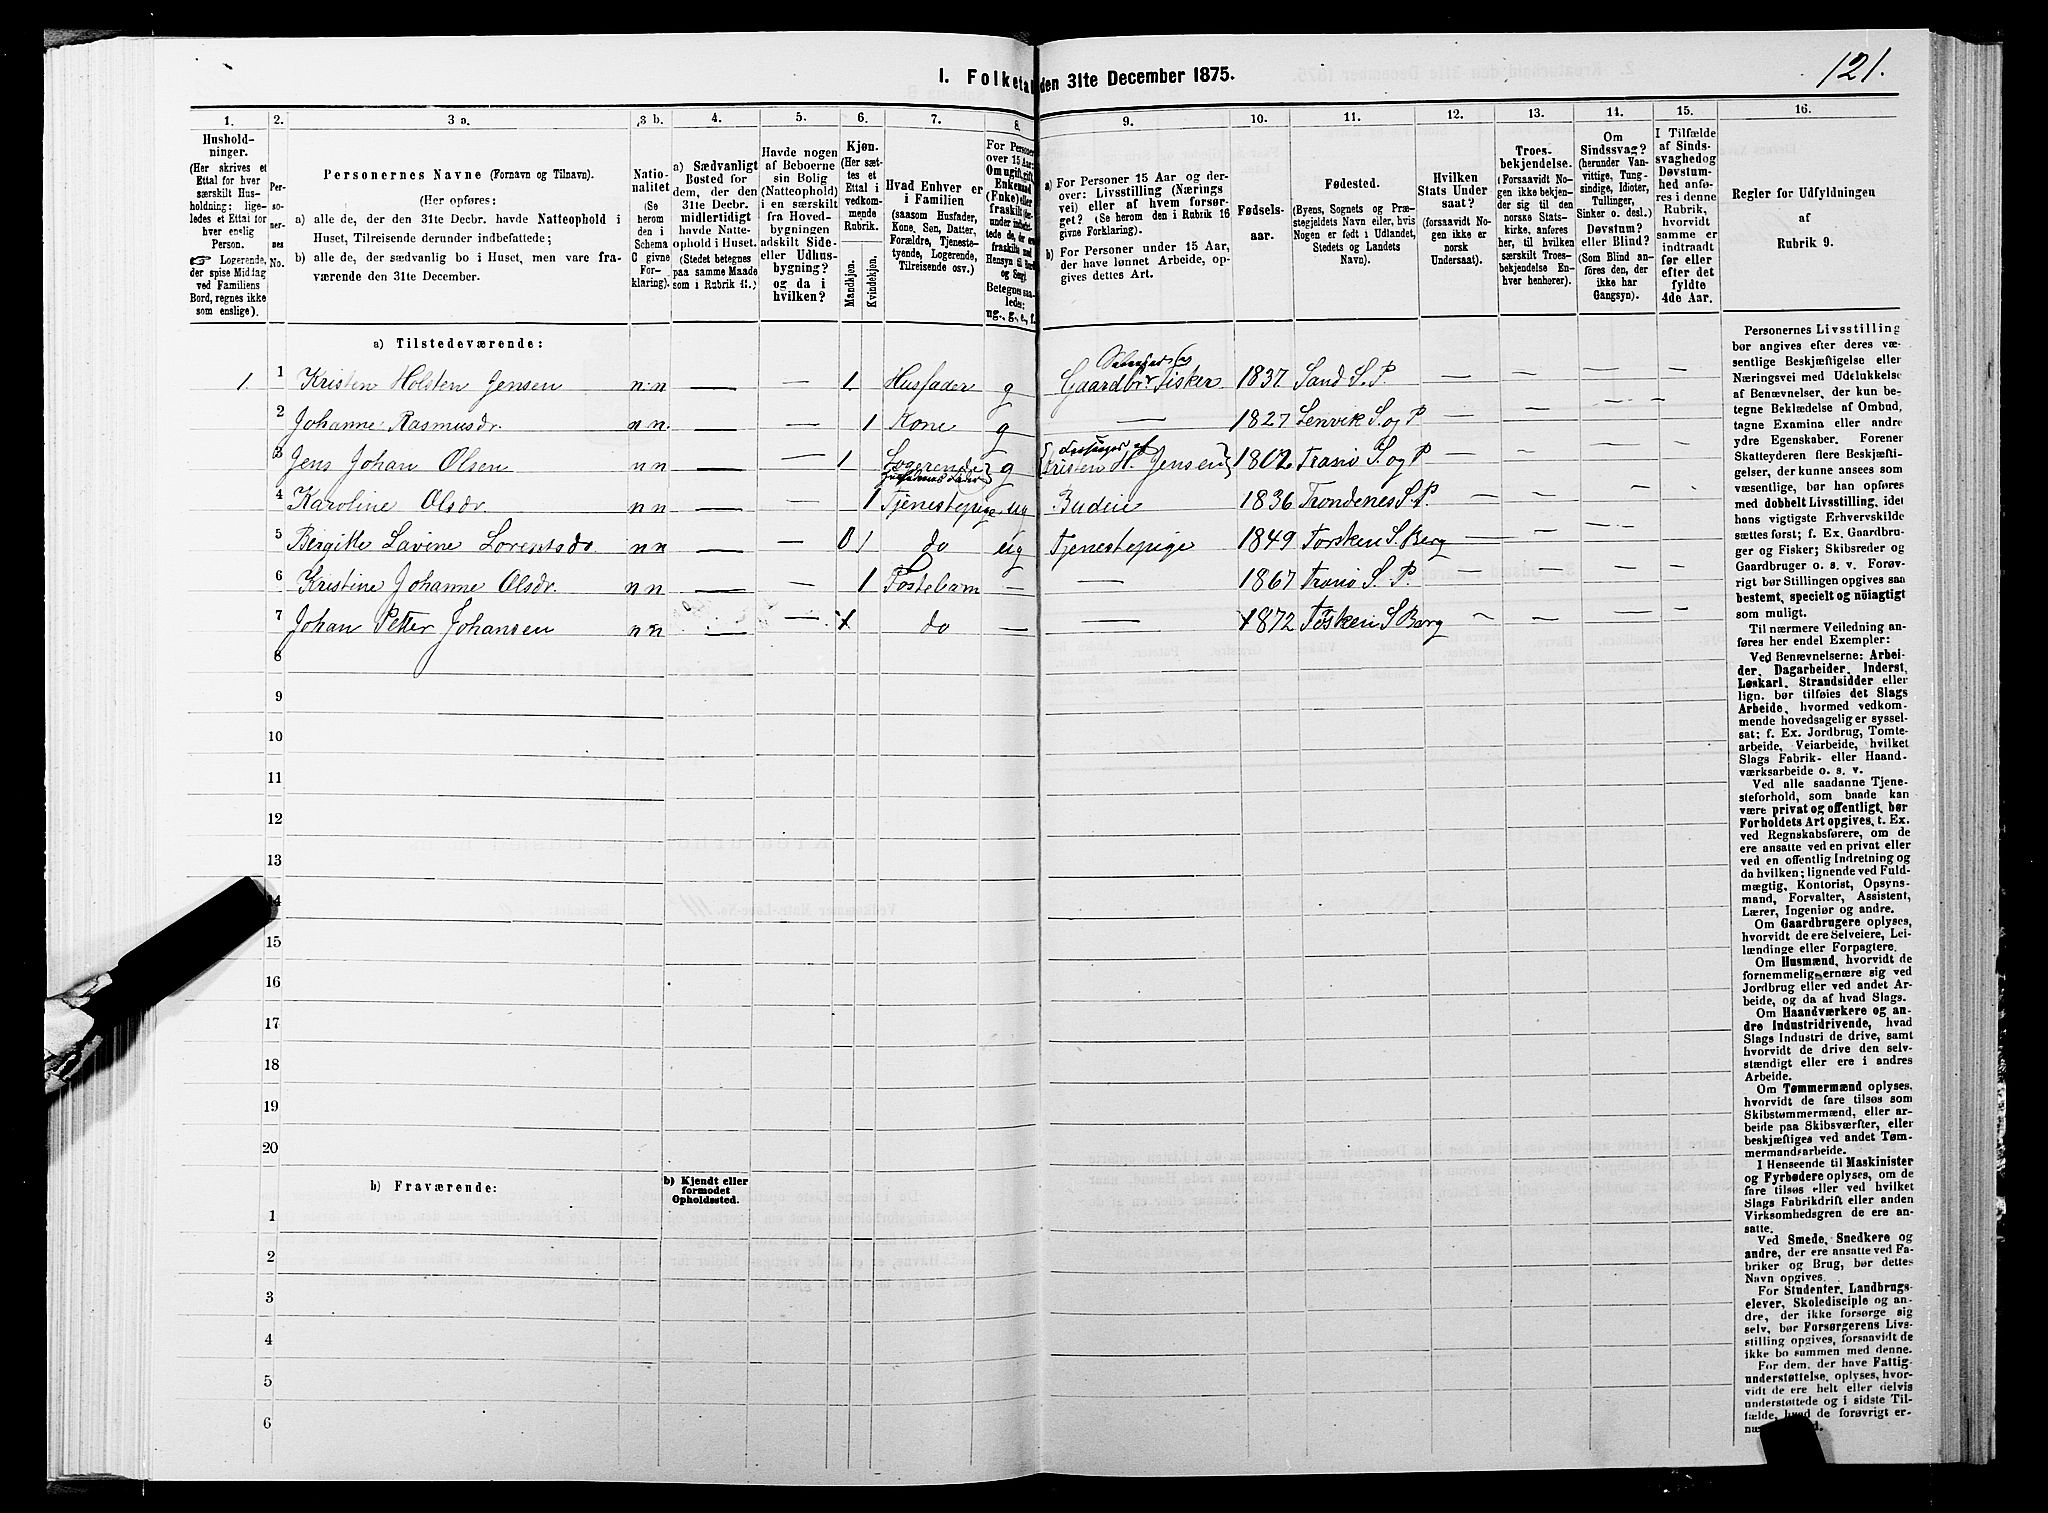 121.
I. Folketal den 31te December 1875.
1. 2. 3 a. 3 b. 4. 5. 6. 7. 8. 9. 10. 11. 12. 13. 14. 15. 16.
Hushold-
ninger.
(Her skrives et
Ettal for hver
særskilt Hus-
holdning; lige-
ledes et Ettal for
hver enslig
Person.
☞ Logerende,
der spise Middag
ved Familiens
Bord, regnes ikke
som enslige).
Per-
so-
ner-
nes
No.
Personernes Navne (Fornavn og Tilnavn).
(Her opføres:
a) alle de, der den 31te Decbr. havde Natteophold i
Huset, Tilreisende derunder indbefattede;
b) alle de, der sædvanlig bo i Huset, men vare fra-
værende den 31te December.
Natio-
nalitet
(Se
herom
den i
Schema
C givne
For-
klaring).
a) Sædvanligt
Bosted for
dem, der den
31te Decbr.
midlertidigt
havde Natte-
ophold i Huset.
(Stedet betegnes
paa samme Maade
som i Rubrik 11.)
Havde nogen
af Beboerne
sin Bolig
(Natteophold)
i en særskilt
fra Hoved-
bygningen
adskilt Side-
eller Udhus-
bygning?
og da i
hvilken?
Kjøn.
(Her sæt-
tes et
Ettal i
vedkom-
mende
Rubrik.
Mandkjøn.
Kvindekjøn.
Hvad Enhver er
i Familien
(saasom Husfader,
Kone, Søn, Datter,
Forældre, Tjeneste-
tyende, Logerende,
Tilreisende osv.)
For Personer
over 15 Aar:
Om ugift, gift,
Enkemand
(Enke) eller
fraskilt
Betegnes saa-
ledes:
ug., g., e., f.
a) For Personer 15 Aar og der-
over: Livsstilling (Nærings
vei) eller af hvem forsør-
get? (Se herom den i Rubrik 16
givne Forklaring).
b) For Personer under 15 Aar,
der have lønnet Arbeide, op-
gives dettes Art.
Fødsels-
aar.
Fødested.
(Byens, Sognets og Præ-
stegjeldets Navn eller, hvis
Nogen er født i Udlandet,
Stedets og Landets
Navn).
Hvilken
Stats Under
saat?
(forsaavidt No-
gen ikke er
norsk
Undersaat).
Troes-
bekjendelse.
(Forsaavidt No-
gen ikke bekjen-
der sig til den
norske Stats-
kirke, anføres
her, til hvilken
særskilt Troes-
bekjendelse En-
hver henhører).
Om
Sindssvag?
(herunder Van-
vittige, Tung-
sindige, Idioter,
Tullinger,
Sinker o. desl.)
Døvstum?
eller Blind?
(Som Blind an-
føres den, der
ikke har
Gangsyn).
I Tilfælde
af Sinds-
svaghed og
Døvstum-
hed anfø-
res i denne
Rubrik,
hvorvidt
samme er
indtraadt
før eller
efter det
fyldte
4de Aar.
Regler for Udfyldningen
af
Rubrik 9.
a) Tilstedeværende:
1 1 Kristen Holsten Jensen n. n — — 1 Husfader g Gaardbr Fisker 1837 Sand S. P. — — — —
2 Johanne Rasmusdr. n n. — — 1 Kone g — 1827 Lenvik S. og P — — —
3 Jens Johan Olsen n n — — 1 Logerende g {Kristen H. Jensen} 1802 Tranø S. og P — — — —
4 Karoline Olsdr n n — — 1 Tjenestepige ug Budeie 1836 Trondenes S. P. — — — —
5 Bergitte Lavine Lorentsdr n n — — 0 1 do ug Tjenestepige 1849 Torsken S. Berg — — — —
6 Kristine Johanne Olsdr. n n — — 1 Fostebarn — — 1867 Tranø S. P. — — — —
7 Johan Petter Johansen n n — — 1 do — — 1872 Tosken S Berg — — — —
8
9
10
11
12
13
14
15
16
17
18
19
20
b) Fraværende:
b) Kjendt eller
formodet
Opholdssted.
1
2
3
4
5
6
Personernes Livsstilling
bør angives efter deres væ-
sentlige Beskjæftigelse eller
Næringsvei med Udelukkelse
af Benævnelser, der kun be-
tegne Beklædelse af Ombud,
tagne Examina eller andre
ydre Egenskaber. Forener
Skatteyderen flere Beskjæfti-
gelser, der kunne ansees som
væsentlige, bør han opføres
med dobbelt Livsstilling, idet
hans vigtigste Erhvervskilde
sættes først; f. Ex. Gaardbru-
ger og Fisker; Skibsreder og
Gaardbruger o. s. v. Forøv-
rigt bør Stillingen opgives saa
bestemt, specielt og nöiagtigt
som muligt.
Til nærmere Veiledning an-
føres her endel Exempler:
Ved Benævnelserne: Arbei-
der, Dagarbeider, Inderst,
Løskarl, Strandsidder eller
lign. bør tilføies det Slags
Arbeide, hvormed vedkom-
mende hovedsagelig er syssel-
sat; f. Ex. Jordbrug, Tomte-
arbeide, Veiarbeide, hvilket
Slags Fabrik- eller Haand-
værksarbeide o. s. v.
Ved alle saadanne Tjene-
steforhold, som baade kan
være privat og offentligt, bør
Forholdets Art opgives, t. Ex.
ved Regnskabsførere, om de
ere ansatte ved en privat eller
ved en offentlig Indretning og
da hvilken; lignende ved Fuld-
mægtig, Kontorist, Opsyns-
mand, Forvalter, Assistent,
Lærer, Ingeniør og andre.
Om Gaardbrugere oplyses,
hvorvidt de ere Selveiere, Lei-
lændinge eller Forpagtere.
Om Husmænd, hvorvidt de
fornemmelig ernære sig ved
Jordbrug eller ved andet Ar-
beide, og da af hvad Slags.
Om Haandværkere og an-
dre Industridrivende, hvad
Slags Industri de drive, samt
hvorvidt de drive den selv-
stændigt eller ere i andres
Arbeide.
Om Tømmermænd oplyses,
hvorvidt de fare tilsøs som
Skibstømmermænd, eller ar-
beide paa Skibsværfter, eller
beskjæftiges ved andet Tøm-
mermandsarbeide.
I Henseende til Maskinister
og Fyrbødere oplyses, om de
fare tilsøs eller ved hvilket
Slags Fabrikdrift eller anden
Virksomhedsgren de ere an-
satte.
Ved Smede, Snedkere og
andre, der ere ansatte ved Fa-
briker og Brug, bør dettes
Navn opgives.
For Studenter, Landbrugs-
elever, Skoledisciple og an-
dre, der ikke forsørge sig
selv, bør Forsørgerens Livs-
stilling opgives, forsaavidt de
ikke bo sammen med denne.
For dem, der have Fattig-
understøttelse, oplyses, hvor-
vidt de ere helt eller delvis
understøttede og i sidste Til-
fælde, hvad de forøvrigt er-